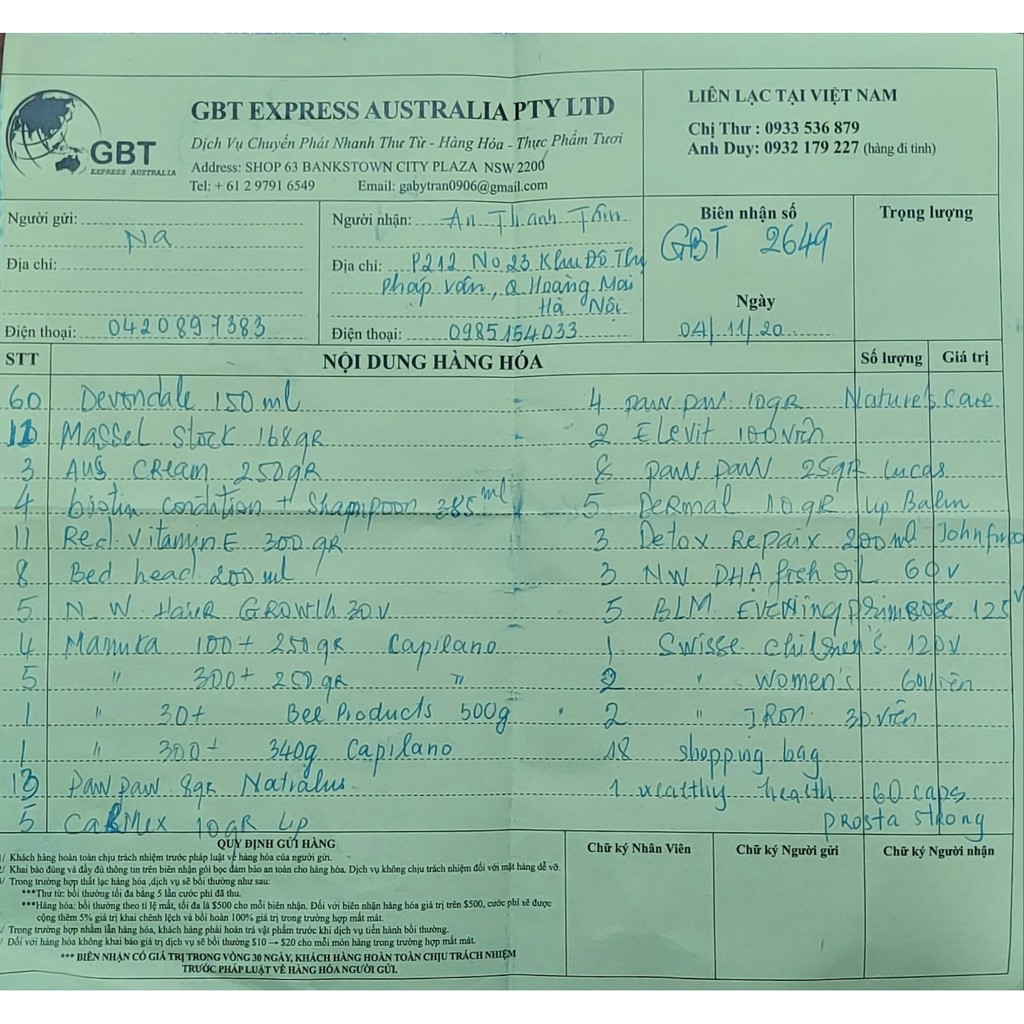 GBT EXPRESS AUSTRALIA PTY LTD
Dịch Vụ Chuyển Phát Nhanh Thư Từ - Hàng Hóa - Thực Phẩm Tươi
Address: SHOP 63 BANKSTOWN CITY PLAZA NSW 2200
Tel: + 61 2 9791 6549 Email: gabytran0906@gmail.com
GBT
EXPRESS AUSTRALIA
LIÊN LẠC TẠI VIỆT NAM
Chị Thư : 0933 536 879
Anh Duy: 0932 179 227 (hàng đi tỉnh)
Người gửi:
Na
Địa chỉ:
Điện thoại: 0420897383
Người nhận: An Thanh Tâm
Địa chỉ: P212 No 23 Khu Đô Thị
Pháp Vân, Q Hoàng Mai
Hà Nội
Điện thoại: 0985154033
Biên nhận số
GBT 2649
Ngày
04/11/20
Trọng lượng
STT NỘI DUNG HÀNG HÓA Số lượng Giá trị
60 Devondale 150 ml
Massel Stock 168gR
3 Aus CReam 250gR
4 biotin condition + Shampoon 385 ml
11 Red Vitamin E 300 gR
8 Bed head 200 ml
5 N.W HaiR GROWth 30V
4 Manuka 100+ 250gR Capilano
5 " 300+ 250gR "
1 " 30+ Bee Products 500g
1 " 300+ 340g Capilano
13 Paw paw 8gR Natralus
5 CaRMex 10gR Lip
4 paw paw 10gR Nature's Care
2 Elevit 100 viên
8 paw paw 25gR Lucas
5 DeRmal 10gR Lip Balm
3 Detox Repair 200ml
3 NW DHA fish OIL 60V
5 BLM EVENING pRimROSE 125V
1 Swisse children's 120V
2 " Women's 60 viên
2 " IRon 30 viên
18 shopping bag
1 wealthy health 60 caps
PRosta Strong
QUY ĐỊNH GỬI HÀNG
1/ Khách hàng hoàn toàn chịu trách nhiệm trước pháp luật về hàng hóa của người gửi.
2/ Khai báo đúng và đầy đủ thông tin trên biên nhận gói bọc đảm bảo an toàn cho hàng hóa. Dịch vụ không chịu trách nhiệm đối với mặt hàng dễ vỡ.
/ Trong trường hợp thất lạc hàng hóa ,dịch vụ sẽ bồi thường như sau:
***Thư từ: bồi thường tối đa bằng 5 lần cước phí đã thu.
***Hàng hóa: bồi thường theo tỉ lệ mất, tối đa là $500 cho mỗi biên nhận. Đối với biên nhận hàng hóa giá trị trên $500, cước phí sẽ được
cộng thêm 5% giá trị khai chênh lệch và bồi hoàn 100% giá trị trong trường hợp mất mát.
/ Trong trường hợp nhầm lẫn hàng hóa, khách hàng phải hoàn trả vật phẩm trước khi dịch vụ tiến hành bồi thường.
/ Đối với hàng hóa không khai báo giá trị dịch vụ sẽ bồi thường $10 → $20 cho mỗi món hàng trong trường hợp mất mát.
*** BIÊN NHẬN CÓ GIÁ TRỊ TRONG VÒNG 30 NGÀY, KHÁCH HÀNG HOÀN TOÀN CHỊU TRÁCH NHIỆM
TRƯỚC PHÁP LUẬT VỀ HÀNG HÓA NGƯỜI GỬI.
Chữ ký Nhân Viên
Chữ ký Người gửi
Chữ ký Người nhận